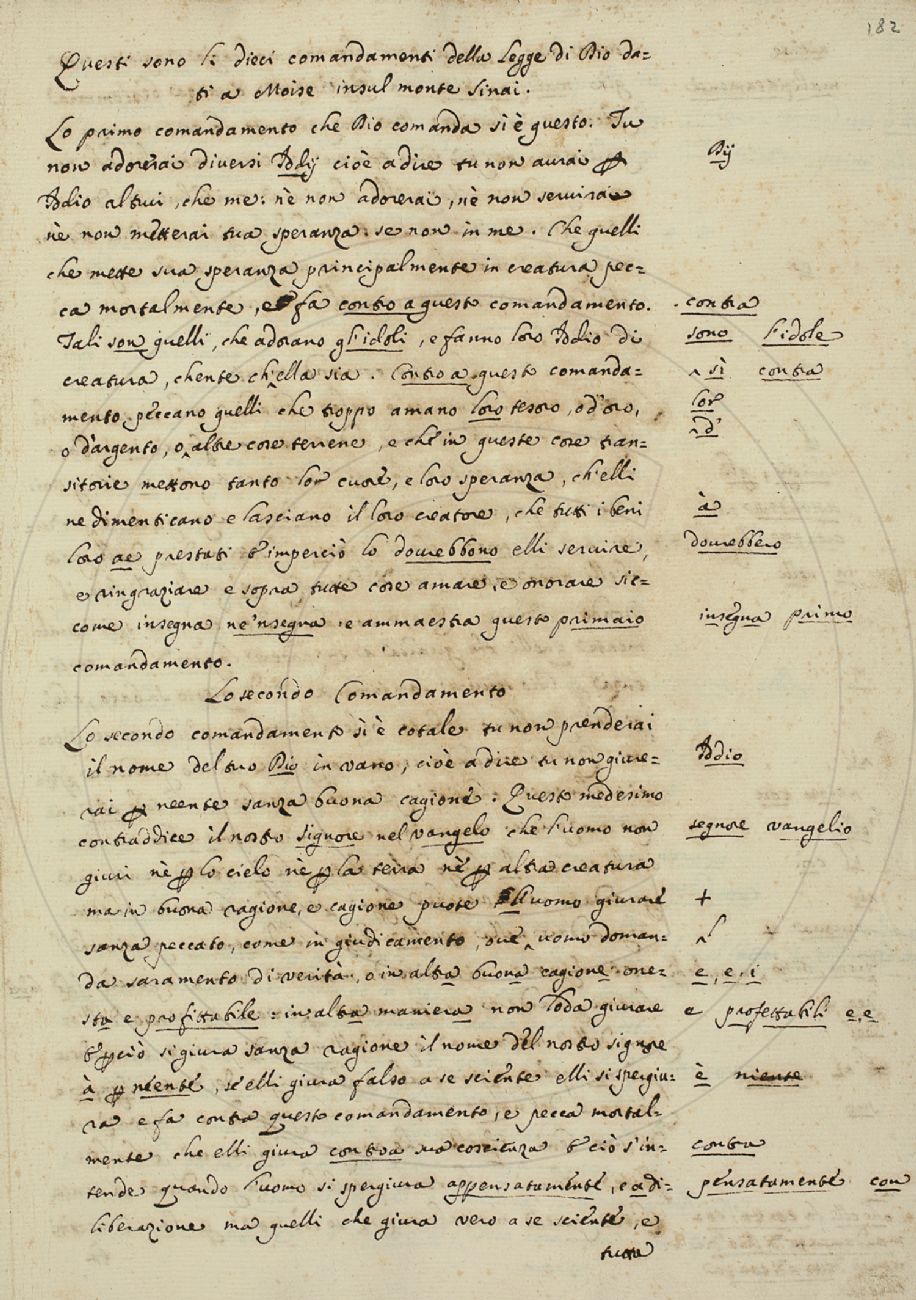 182
Questi sono li dieci comandamenti della Legge di Dio da=
ti a Moise insul monte Sinai.
Lo primo comandamento che Dio comanda sì è questo. Tu
non adorerai diversi Iddij cioè a dire tu non aurai ꝑ Dij
Iddio altrui, che me: nè non adorerai, nè non servirai
nè non metterai tua speranza se non in me. Che quelli
che mette sua speranza principalmente in creatura pec=
ca mortalmente, e fa contro a questo comandamento. contra
Tali son quelli, che adorano gl'idoli, e fanno loro Iddio di sono l'idole
creatura, chente ch'ella sia. Contro a questo comanda= ^ sì contra
mento peccano quelli che troppo amano loro tesoro, o d'oro, lor
o d'argento, o ^ altre cose terrene, e che in queste cose tran= ^ d'
sitorie mettono tanto lor cuore, e loro speranza, ch'elli
ne dimenticano e lasciano il loro creatore, che tutti i beni à
loro ae prestati & imperciò lo dovrebbono elli servire, dovrebbero
e ringraziare e sopra tutte cose amare, e onorare sic=
come insegna ne'nsegna e ammaestra questo primaio insegna primo
comandamento.
Lo secondo Comandamento
Lo secondo comandamento sì è cotale tu non prenderai
il nome del tuo Dio in vano, cioè a dire tu non giure= Iddio
rai ꝑ neente sanza buona cagione. Questo medesimo
contraddice il nostro signore nel vangelo che l'uomo non segnore vangelio
giuri nè ꝑ lo cielo nè ꝑ la terra nè ꝑ altra creatura
ma in buona ragione, e cagione puote l'uomo giurare +
sanza peccato, come in giudicamento, ove ^ uomo doman= ^ l'
da saramento di verità, o in altra buona cagione one= e, e, i
sta e profittabile: in altra maniera non loda giurare e profettabili e, e
& ꝑciò si giura sanza ragione il nome del nostro signore
à ꝑ neente, s'elli giura falso a se sciente elli si spergiu= è niente
ra e fa contra questo comandamento, e pecca mortal=
mente che elli giura controa sua coscienza & ciò s'in= contra
tende quando l'uomo si spergiura appensatamente, e a di= pensatamente con
liberazione ma quelli che giura vero a se sciente, e
tutta